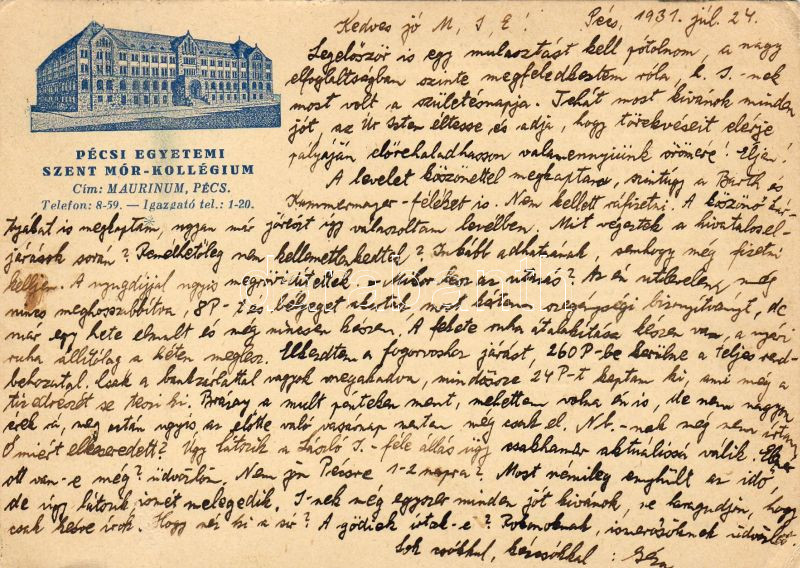 Kedves jó M, J, E! Pécs, 1931. júl. 24.
Legelőször is egy mulasztást kell pótolnom, a nagy
elfoglaltságban szinte megfeledkeztem róla, k. J.-nek
most volt a születésnapja. Tehát most kívánok minden
jót, az Úr Isten éltesse, és adja, hogy törekvéseit elérje
pályáján előrehaladhasson valamennyiünk örömére! Éljen!
A levelet köszönettel megkaptam, szintúgy a Barth és
féléket is. Nem kellett ráfizetni. A
PÉCSI EGYETEMI
SZENT MÓR-KOLLÉGIUM
Cím: MAURINUM, PÉCS.
Telefon: 8-59. — Igazgató tel.: 1-20.
is megkaptam, ugyan már járért így válaszoltam levélben. Mit végeztek a hivatalos el-
járások során? Remélhetőleg nem kellemetlenkedtek? Inkább adhatnának, semhogy még fizetni
kelljen. A nyugdíjjal úgyis megrövidítették. Mikor lesz az utazás? Az én útlevelem még
nincs meghosszabbítva, 8 P-t és bélyeget akartak most hatam szegénységi bizonyítványt, de
már egy hete elmúlt és még nincsen készen. A fekete ruha átalakítása készen van, a nyári
ruha állítólag a héten meglesz. Elkezdtem a fogorvoshoz járást, 260 P-be kerülne a teljes rend-
behozatal. Csak a bankzárlattal vagyok megakadva, mindössze 24 P-t kaptam ki, ami még a
se teszi ki. a múlt pénteken ment, mehettem volna én is, de nem nagyon
rá, meg aztán úgyis az előtte való vasárnap mentem még csak el. N.b.-nek még nem írtam
Ő miért elkeseredett? Úgy látszik a László J.-féle állás ügy csakhamar aktuálissá válik.
ott van-e még? üdvözlöm. Nem jön Pécsre 1-2 napra? Most némileg enyhült az idő
de úgy látszik ismét melegedik. J-nek még egyszer minden jót kívánok, ne haragudjon, hogy
csak késve írok. Hogy néz ki a sír? A gödiek írtak-e? Rokonoknak, ismerősöknek üdvözlet.
Sok csókkal, kézcsókkal: Géza
darabanth